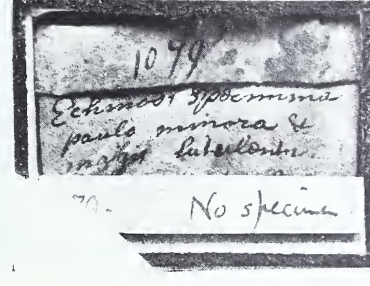 1079
Echinodi specimina
paulo minora &
magis lutulenta
79.
No specimen
1